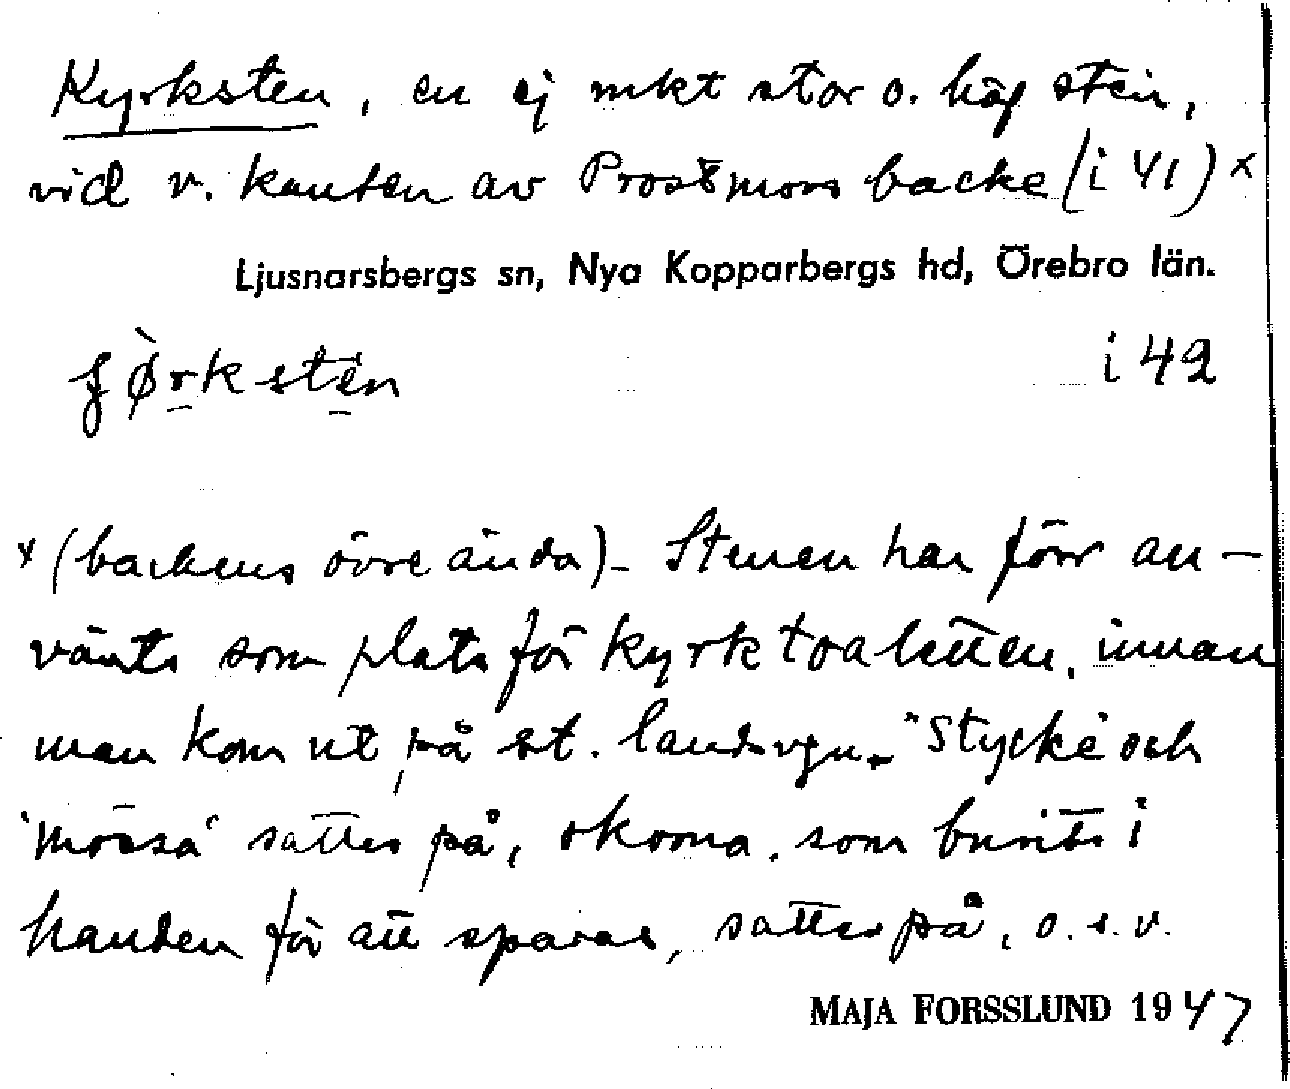 Kyrksten, en ej mkt stor o. hög sten,
vid v. kanten av Prostmors backe (i 41) x
Ljusnarsbergs sn, Nya Kopparbergs hd, Örebro län.
i 42
x (backens övre ända) - Stenen har förr an-
vänts som plats för kyrktoaletten, innan
man kom ut på st. landsvgn. "Stycke" och
"mössa" sattes på, skorna, som burits i
handen för att sparas, sattes på, o.s.v.
MAJA FORSSLUND 1947